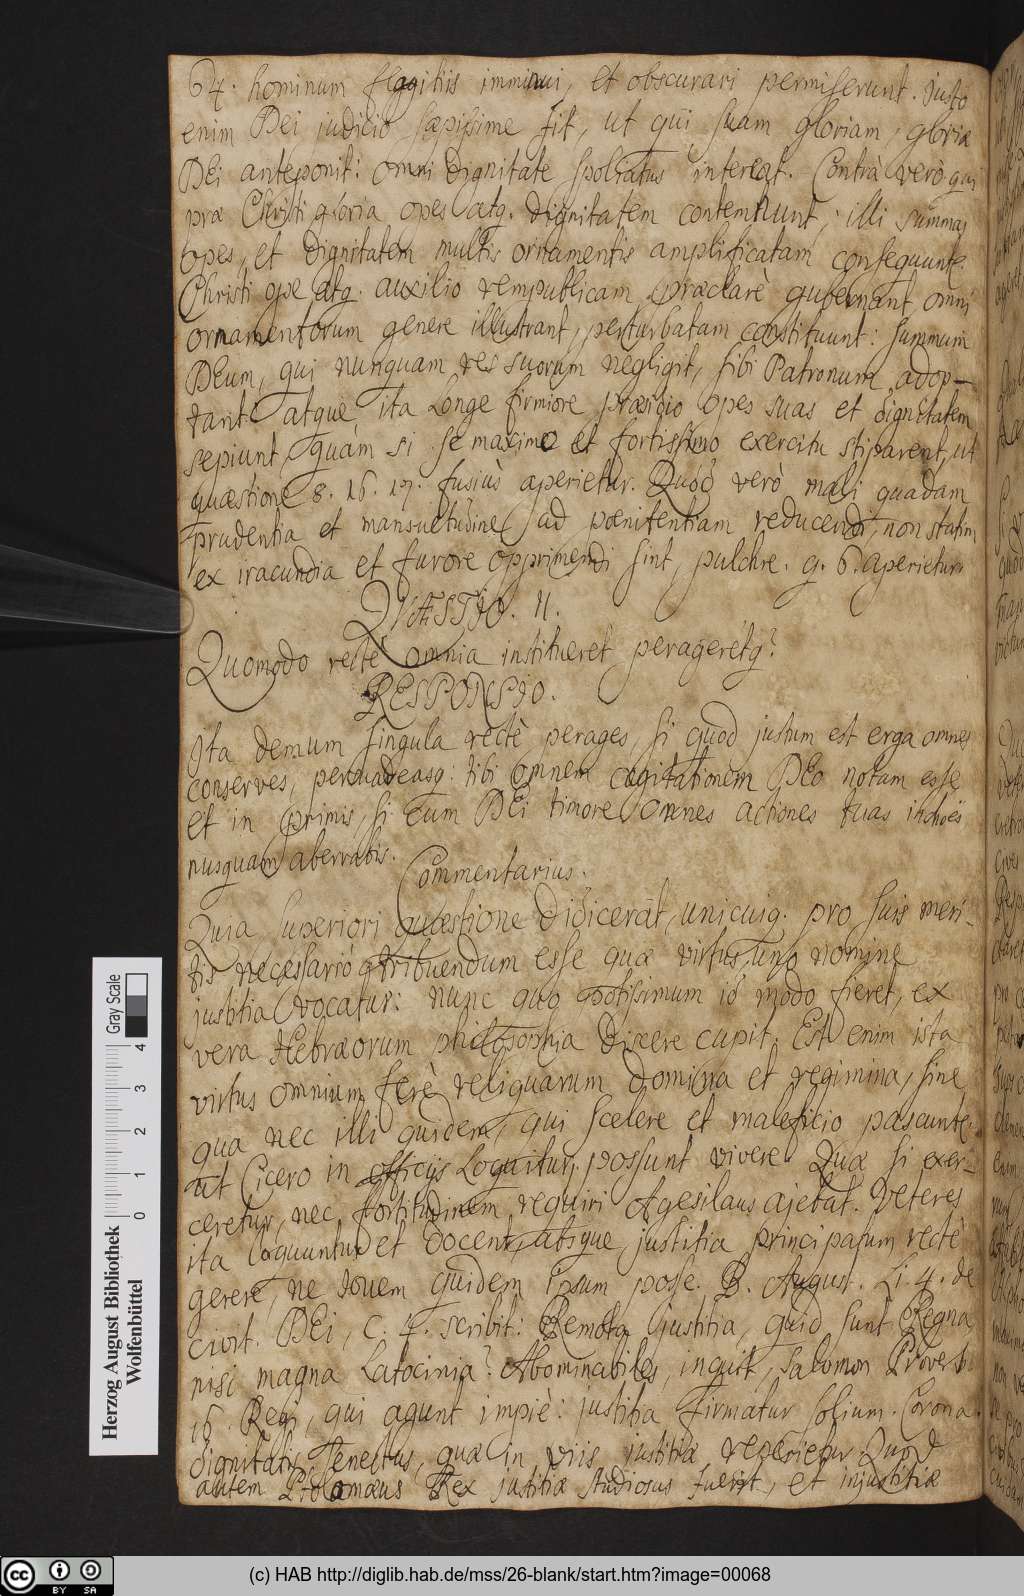 64. hominum flagitiis imminui, et obscurari permiserunt. Justo
enim DEi judicio sæpissime fit, ut qui suam gloriam, gloriæ
DEi anteponit: omni dignitate spoliatus intereat. Contrà verò qui
præ Christi gloria opes atq. dignitatem contemnunt; illi summas
opes, et dignitatem multis ornamentis amplificatam consequuntr
Christi ope atq. auxilio rempublicam præclarè gubernant, omni
ornamentorum genere illustrant, perturbatam constituunt: summum
DEum, qui nunquam res suorum negligit, sibi Patronum adop-
tant: atque ita longe firmiore præsidio opes suas et dignitatem
sepiunt quàm si se maximo et fortissimo exercitu stiparent, ut
quæstione 8. 16. 17. fusiùs aperietur. Quod verò mali quadam
prudentia et mansuetudine ad pœnitentiam reducendi, non statim
ex iracundia et furore opprimendi sint, pulchre. q. 6. aperietur
QVÆSTIO. II.
Quomodo rectè omnia institueret perageretq?
RESPONSIO.
Ita demum singula rectè perages, si quod justum est erga omnes
conserves, persuadeasq: tibi omnem cogitationem DEo notam esse
et in primis, si cum DEi timore omnes actiones tuas inchoës
nusquam aberrabis.
Commentarius.
Quia superiori quæstione didicerat, unicuiq. pro suis meri-
tis necessariò tribuendum esse quæ virtus uno nomine
justitia vocatur: nunc quo potissimum id modo fieret, ex
vera Hebræorum philosophia discere cupit. Est enim ista
virtus omnium ferè reliquarum domina et regimina, sine
qua nec illi quidem, qui scelere et maleficio pascuntr.
ut Cicero in officijs loquitur, possunt vivere. Quæ si exer-
ceretur, nec fortitudinem requiri Agesilaus ajebat. Veteres
ita loquuntur et docent, absque justitia principatum rectè
gerere, ne Iovem quidem ipsum posse. B. August. Li. 4. de
civit. DEi, c. 4. scribit: Remota justitia, quid sunt Regna
nisi magna Latocinia? Abominabiles, inquit, Salomon Proverb.
16. Regi, qui agunt impiè: justitia firmatur solium. Corona
dignitatis senectus, quæ in viis justitiæ reperietur. Quod
autem Ptolomæus Rex justitiæ studiosus fuerit, et injustitiæ
Herzog August Bibliothek
Wolfenbüttel
0 1 2 3 4
Gray Scale
cc BY SA
(c) HAB http://diglib.hab.de/mss/26-blank/start.htm?image=00068